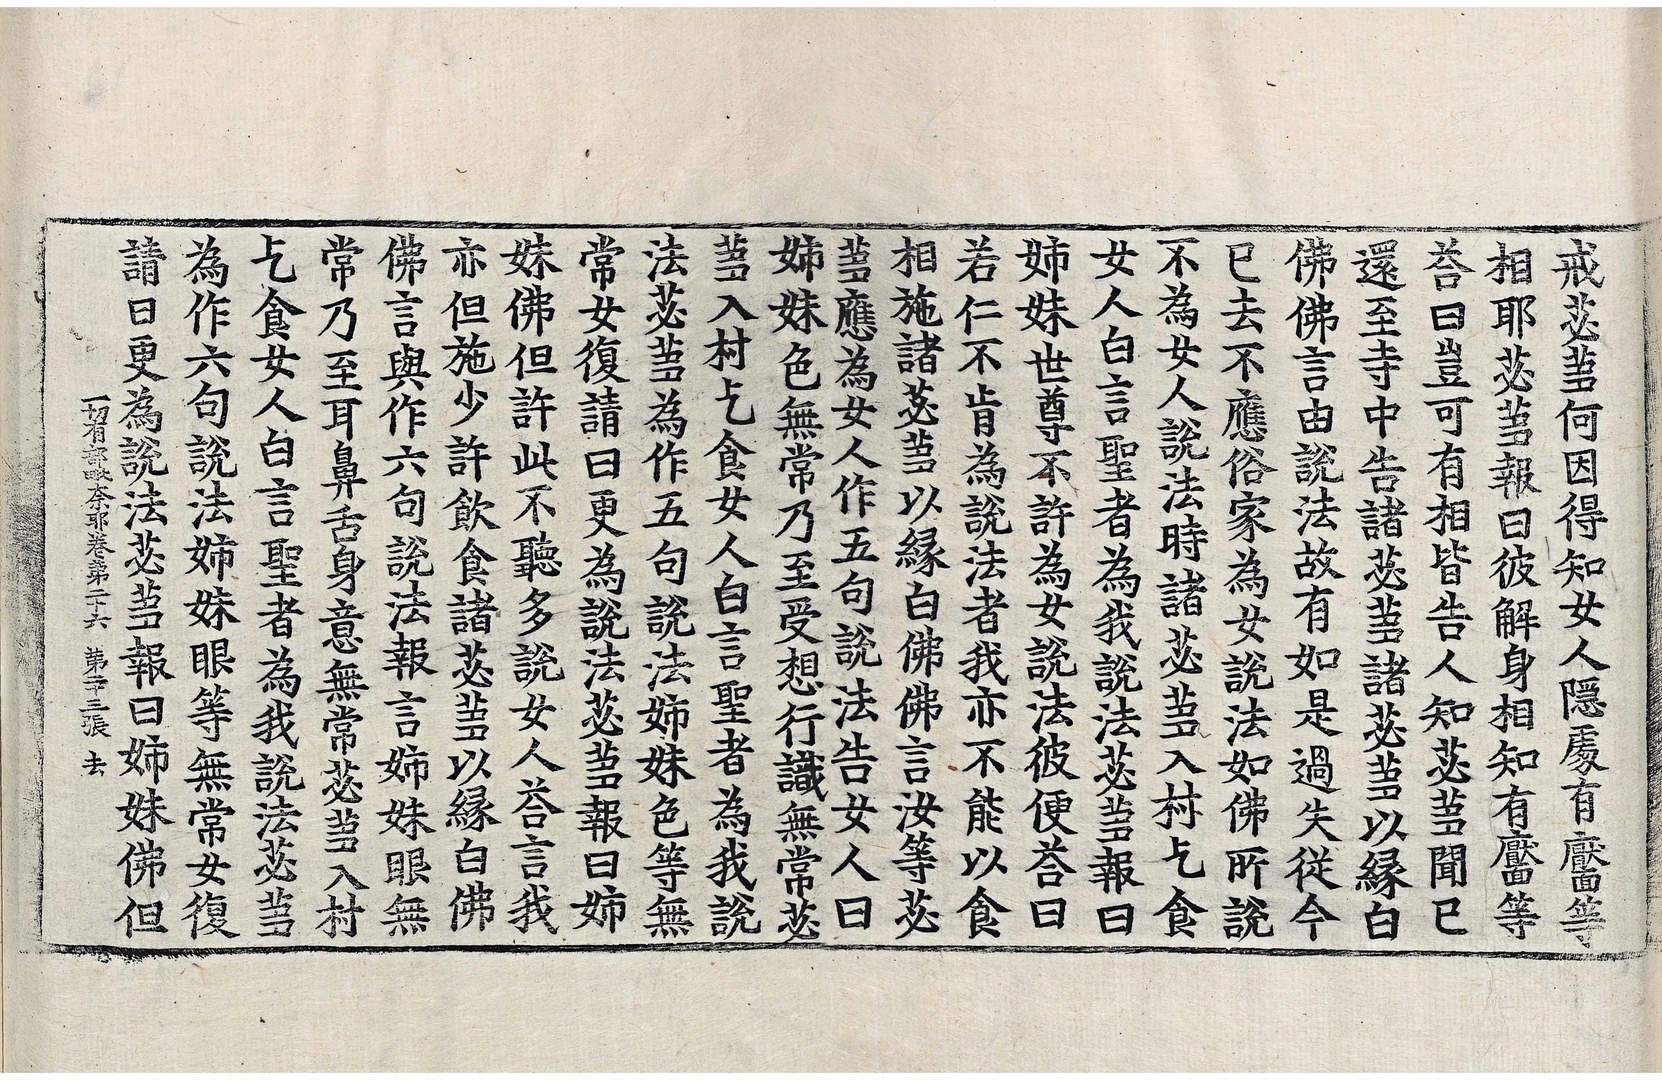 戒苾蒭何因得知女人隱處有黶等
相耶苾蒭報曰彼解身相知有黶等
荅曰豈可有相皆告人知苾蒭聞已
還至寺中告諸苾蒭諸苾蒭以縁白
佛佛言由說法故有如是過失從今
已去不應俗家為女說法如佛所說
不為女人說法時諸苾蒭入村乞食
女人白言聖者為我說法苾蒭報曰
姉妹世尊不許為女說法彼便荅曰
若仁不肯為說法者我亦不能以食
相施諸苾蒭以縁白佛佛言汝等苾
蒭應為女人作五句說法告女人曰
姉妹色無常乃至受想行識無常苾
蒭入村乞食女人白言聖者為我說
法苾蒭為作五句說法姉妹色等無
常女復請曰更為說法苾蒭報曰姉
妹佛但許此不聽多說女人荅言我
亦但施少許飲食諸苾蒭以縁白佛
佛言與作六句說法報言姉妹眼無
常乃至耳鼻舌身意無常苾蒭入村
乞食女人白言聖者為我說法苾蒭
為作六句說法姉妹眼等無常女復
請曰更為說法苾蒭報曰姉妹佛但
一切有部毗奈耶卷第二十六 第十三張 去